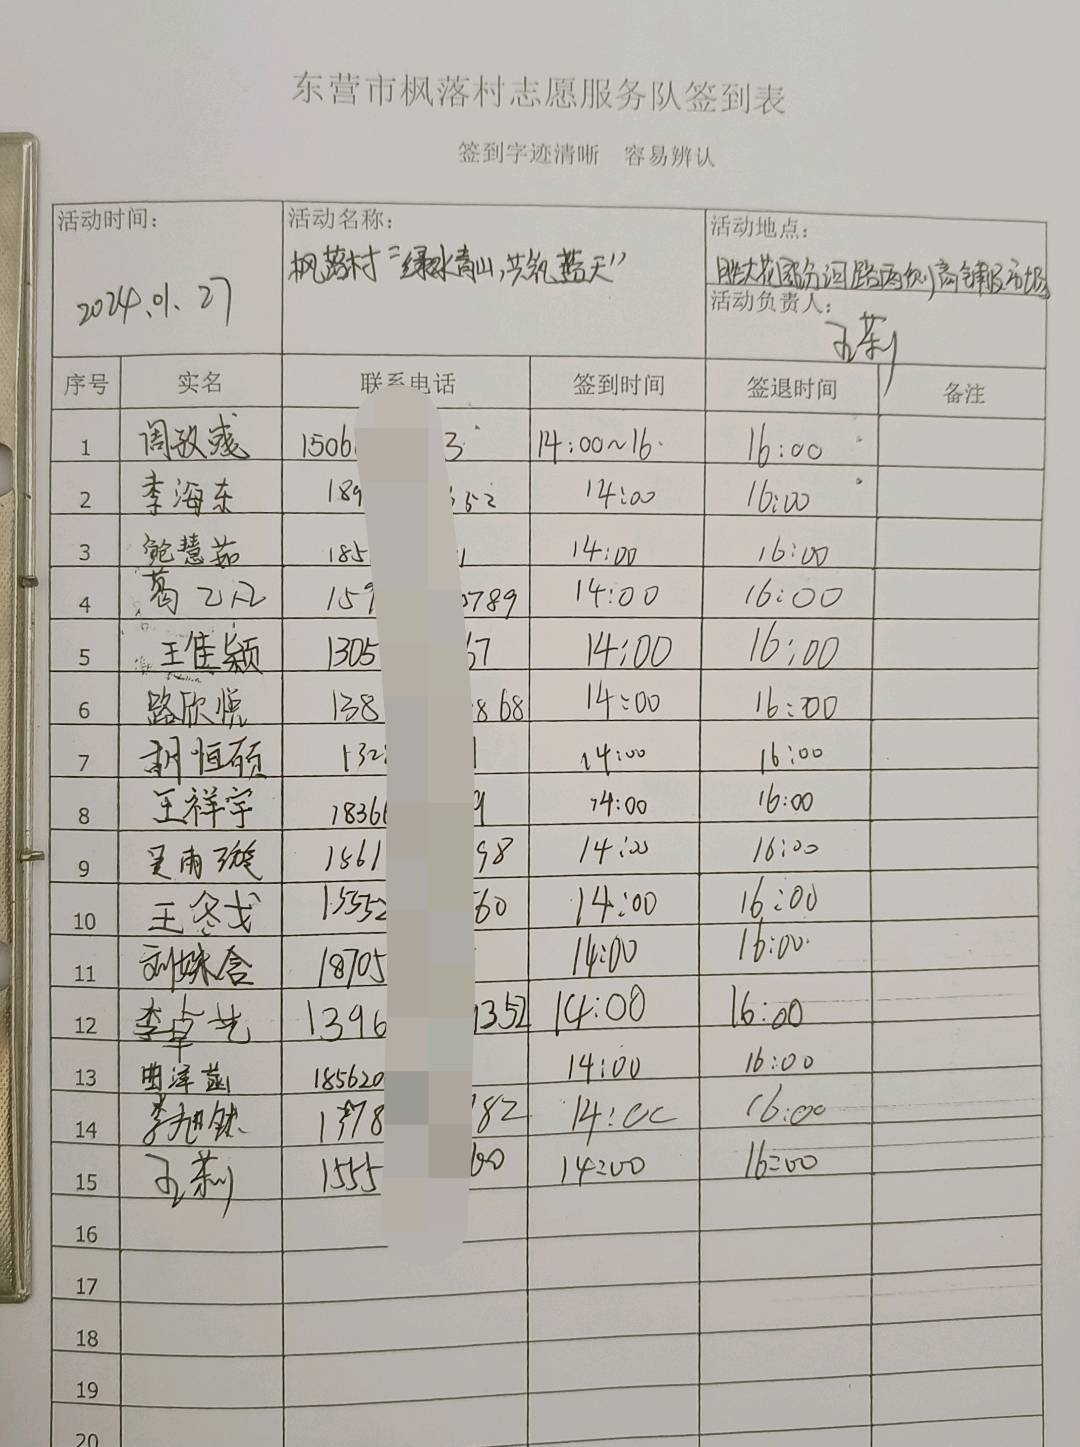 东营市枫落村志愿服务队签到表
签到字迹清晰 容易辨认
活动时间: 活动名称: 活动地点:
2024.01.27 枫落村“绿水青山,共筑蓝天” 胜大花园 路两侧商铺及市场
活动负责人:
序号 实名 联系电话 签到时间 签退时间 备注
1 周 1506 3 14:00~16. 16:00
2 李海东 189 352 14:00 16:00
3 鲍慧茹 185 1 14:00 16:00
4 葛乙凡 159 0789 14:00 16:00
5 王佳颖 1305 67 14:00 16:00
6 路欣悦 138 868 14:00 16:00
7 胡恒硕 132 1 14:00 16:00
8 王祥宇 1836 9 14:00 16:00
9 吴雨璇 1561 98 14:00 16:00
10 王冬戈 1555 60 14:00 16:00
11 刘姝含 18705 14:00 16:00
12 李卓艺 1396 1352 14:00 16:00
13 曲泽菡 185620 14:00 16:00
14 李旭 1378 782 14:00 16:00
15 1555 60 14:00 16:00
16
17
18
19
20